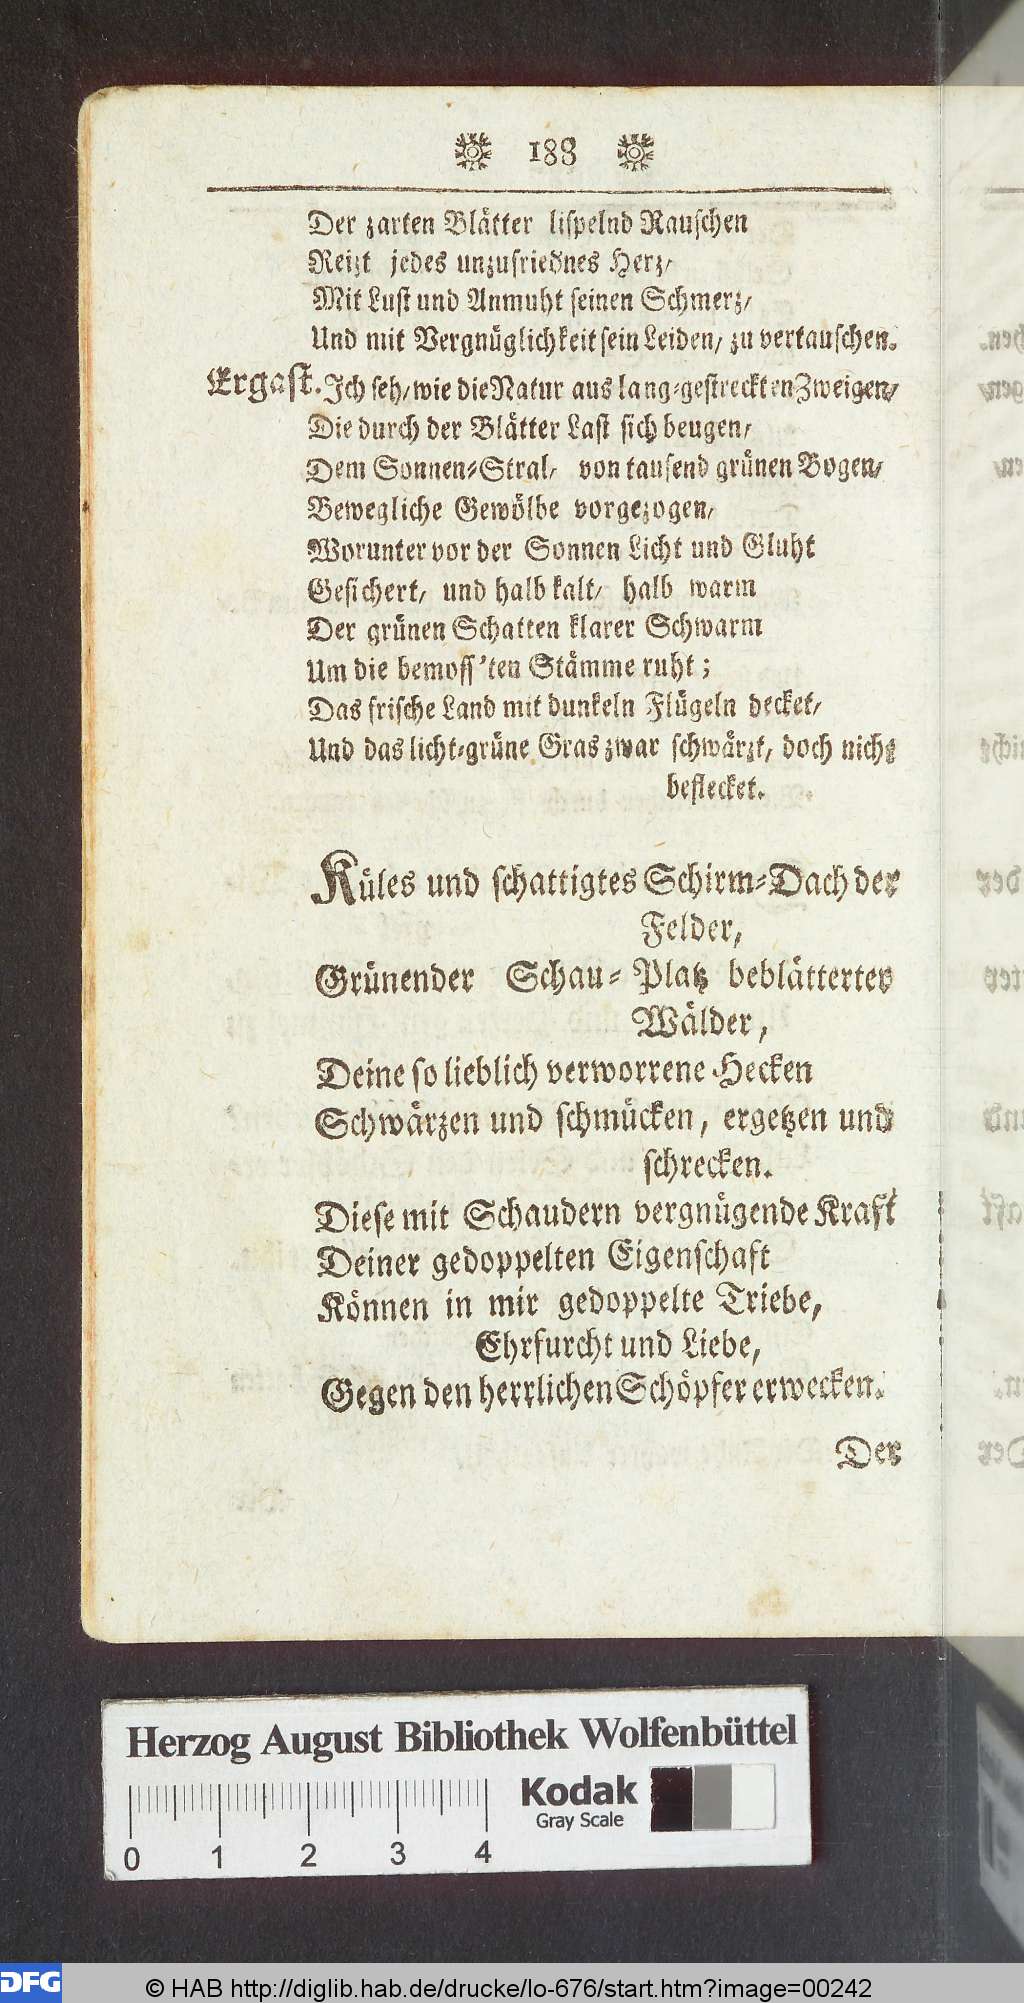 188
Der zarten Blätter lispelnd Rauschen
Reizt jedes unzufriednes Herz/
Mit Lust und Anmuht seinen Schmerz/
Und mit Vergnüglichkeit sein Leiden/ zu vertauschen.
Ergast. Ich seh/ wie die Natur aus lang-gestreckten Zweigen/
Die durch der Blätter Last sich beugen/
Dem Sonnen-Stral/ von tausend grünen Bogen/
Bewegliche Gewölbe vorgezogen/
Worunter vor der Sonnen Licht und Gluht
Gesichert/ und halb kalt/ halb warm
Der grünen Schatten klarer Schwarm
Um die bemoss'ten Stämme ruht;
Das frische Land mit dunkeln Flügeln decket/
Und das licht-grüne Gras zwar schwärzt/ doch nicht
beflecket.
Küles und schattigtes Schirm-Dach der
Felder,
Grünender Schau-Platz beblätterter
Wälder,
Deine so lieblich verworrene Hecken
Schwärzen und schmücken, ergetzen und
schrecken.
Diese mit Schaudern vergnügende Kraft
Deiner gedoppelten Eigenschaft
Können in mir gedoppelte Triebe,
Ehrfurcht und Liebe,
Gegen den herrlichen Schöpfer erwecken.
Der
Herzog August Bibliothek Wolfenbüttel
Kodak
Gray Scale
0 1 2 3 4
DFG
© HAB http://diglib.hab.de/drucke/lo-676/start.htm?image=00242